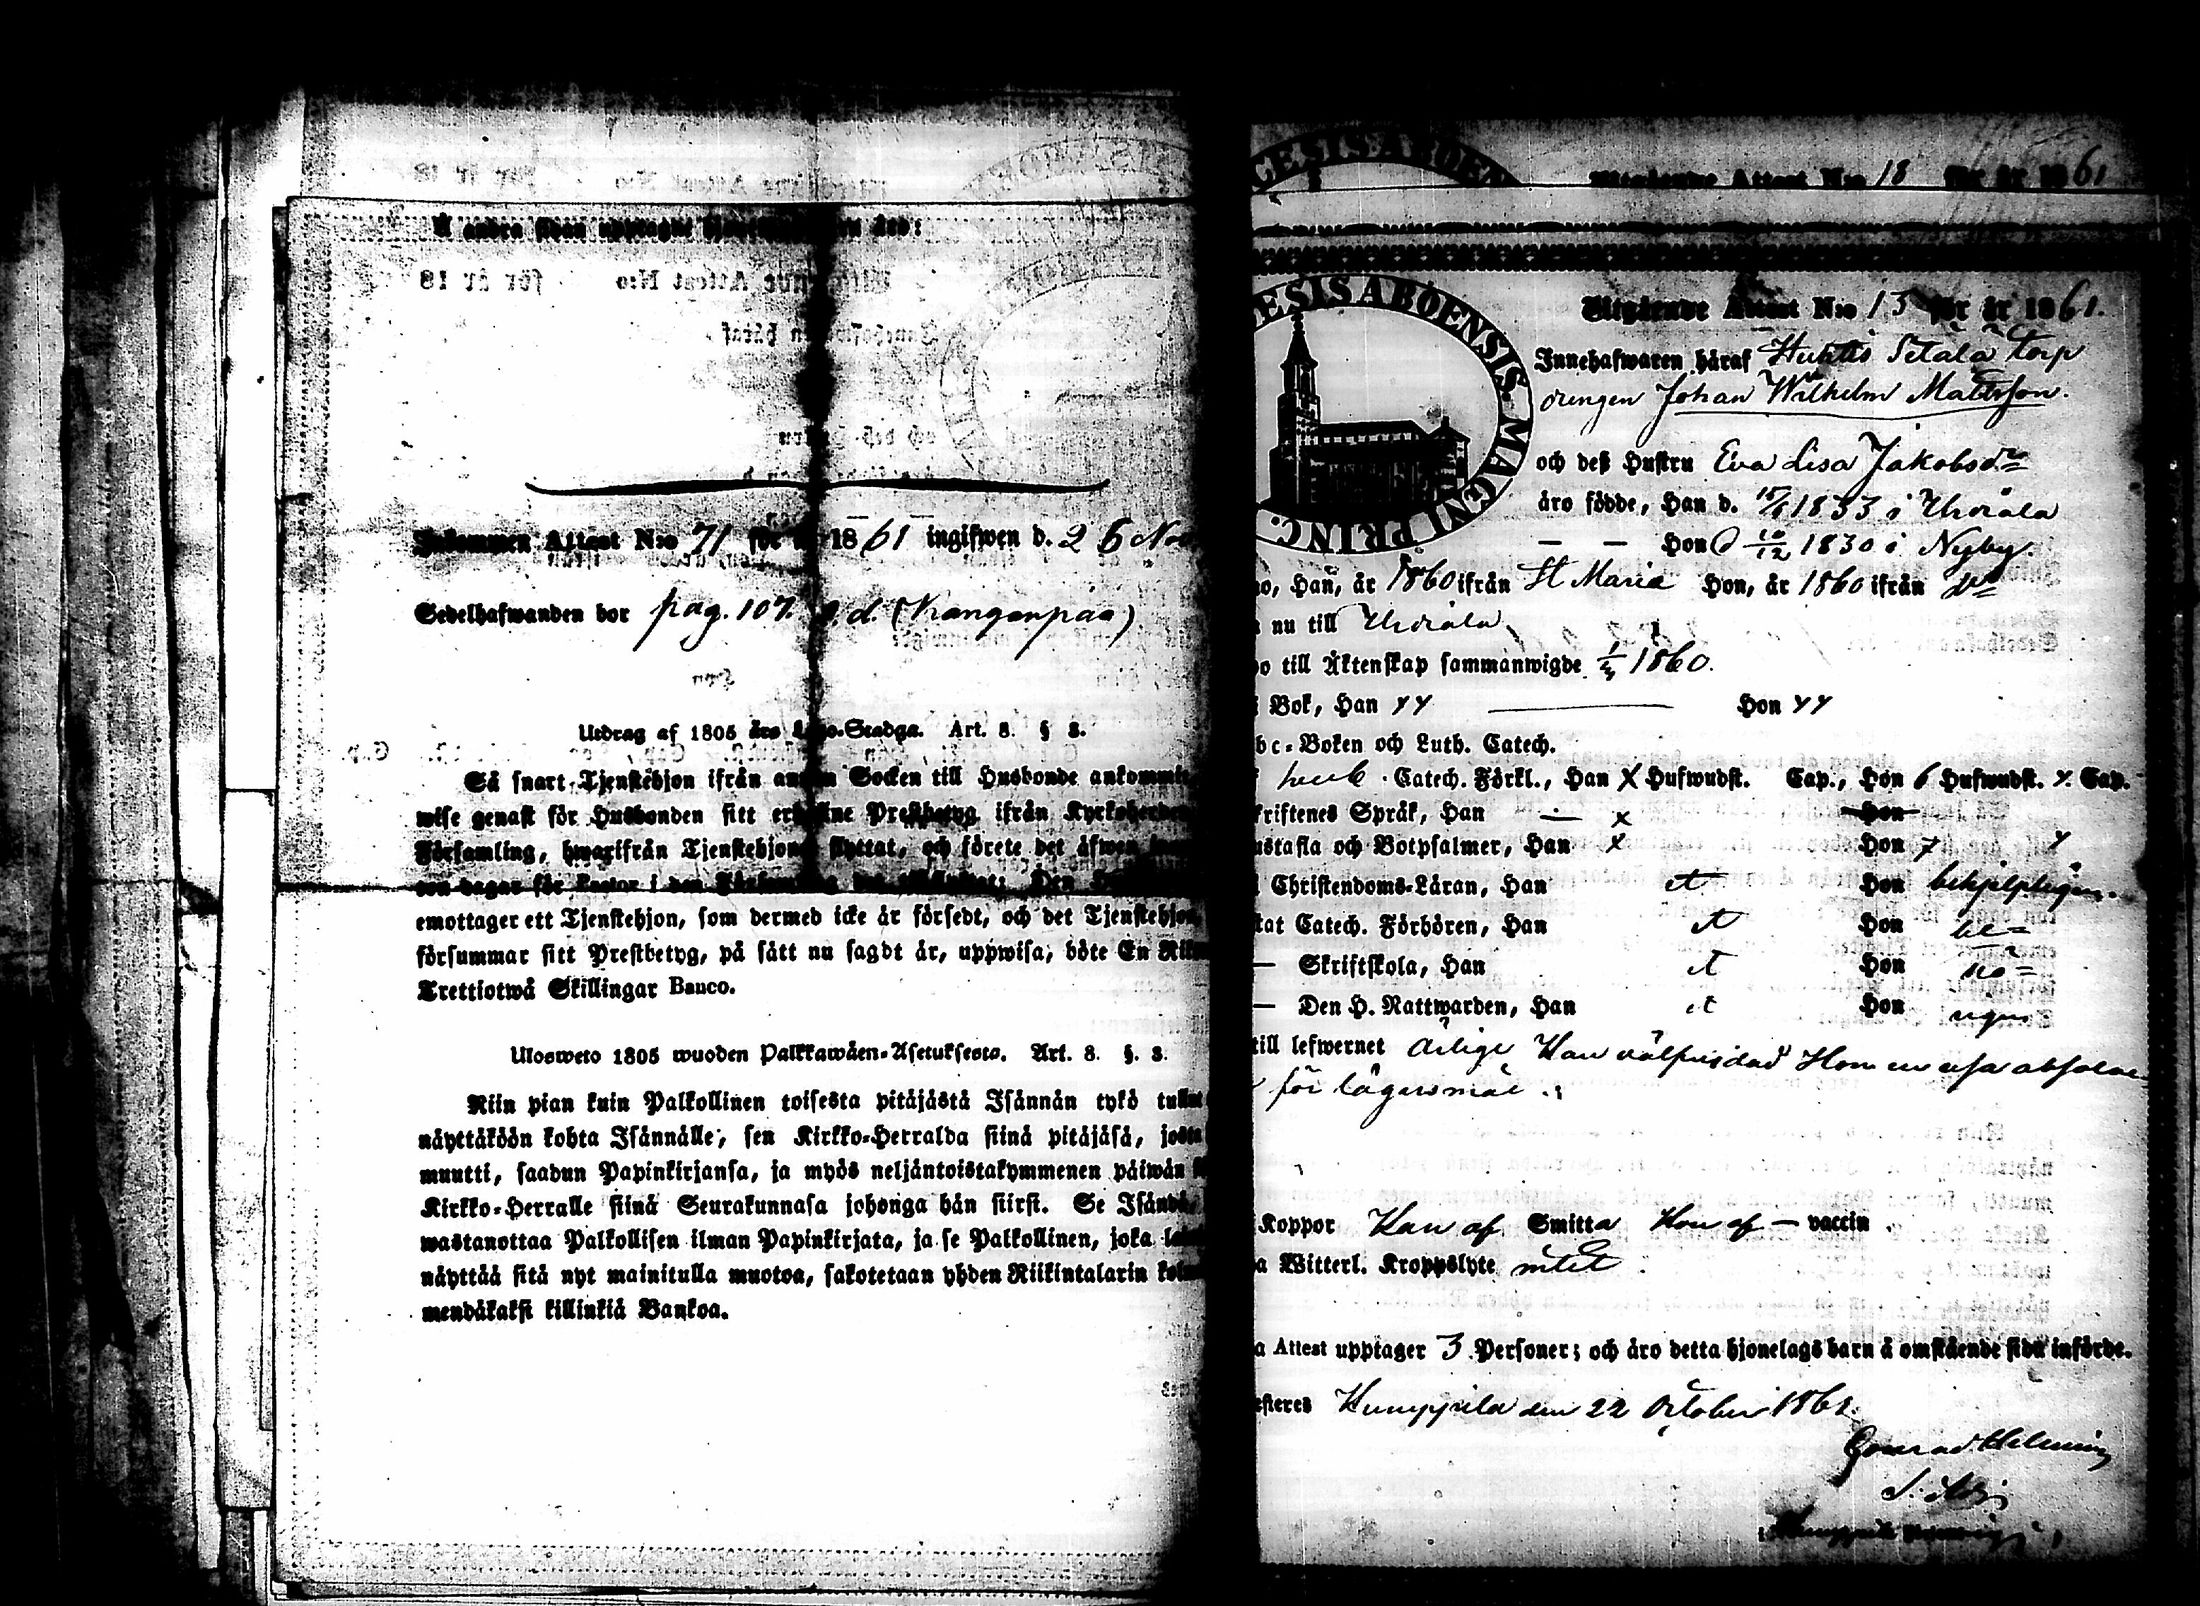 Å andra sidan upptagne
Inkommen Attest N:o 71 för år 1861 ingifwen d. 26 Nov
Sedelhafwanden bor pag. 107. (Kanganpää)
Utdrag af 1805 års Lego-Stadga. Art. 8. § 3.
Så snart Tjenstehjon ifrån annan Socken till Husbonde ankommit,
wise genast för Husbonden sitt erhållne Prestbetyg ifrån Kyrkoherden
Församling, hwarifrån Tjenstehjonet flyttat, och förete det äfwen
ton dagar för Pastor i den Församling
emottager ett Tjenstehjon, som dermed icke är försedt, och det Tjenstehjon
försummar sitt Prestbetyg, på sätt nu sagdt är, uppwisa, böte En Riks
Trettiotwå Skillingar Banco.
Ulosweto 1805 wuoden Palkkawäen-Asetuksesta. Art. 8. §. 3.
Niin pian kuin Palkollinen toisesta pitäjästä Isännän tykö tullut
näyttäköön kohta Isännälle, sen Kirkko-Herralda siinä pitäjäsä, josta
muutti, saadun Papinkirjansa, ja myös neljäntoistakymmenen päiwän
Kirkko-Herralle siinä Seurakunnasa johonga hän siirsi. Se Isändä,
wastanottaa Palkollisen ilman Papinkirjata, ja se Palkollinen, joka
näyttää sitä nyt mainitulla muotoa, sakotetaan yhden Riikintalarin kolme
mendäkaksi killinkiä Bankoa.
CESIS ABOEN
Utgående Attest N:o 18 för år 1861
ESIS ABOENSIS. MAGNI PRINC.
Utgående Attest N:o 15 för år 1861.
Innehafwaren häraf Huhtis Setälä torp
drengen Johan Wilhelm Mattsson.
och deß Hustru Eva Lisa Jakobsdr
äro födde, Han d. 1833 i Urdiala
— — Hon d 10/12 1830 i Nyby.
o, Han, år 1860 ifrån St Marie Hon, år 1860 ifrån
nu till Urdiala
o till Äktenskap sammanwigde 1860.
Bok, Han Hon
bc-Boken och Luth. Catech.
Catech. Förkl., Han x Hufwudst. Cap., Hon 6 Hufwudst. 4. Cap.
kriftenes Språk, Han — x Hon
ustafla och Botpsalmer, Han x Hon 7
Christendoms-Läran, Han Hon behjelpligen.
tat Catech. Förhören, Han Hon
— Skriftskola, Han Hon
— Den H. Nattwarden, Han Hon
till lefwernet ärlige Han välfrejdad Hon
för lägersmål.
Koppor Han af Smitta Hon af — vaccin
a Witterl. Kroppslyte intet
a Attest upptager 3 Personer; och äro detta hjonelags barn å omstående sida införde.
esteres Humppila den 22 October 1861.
Conrad Helenius